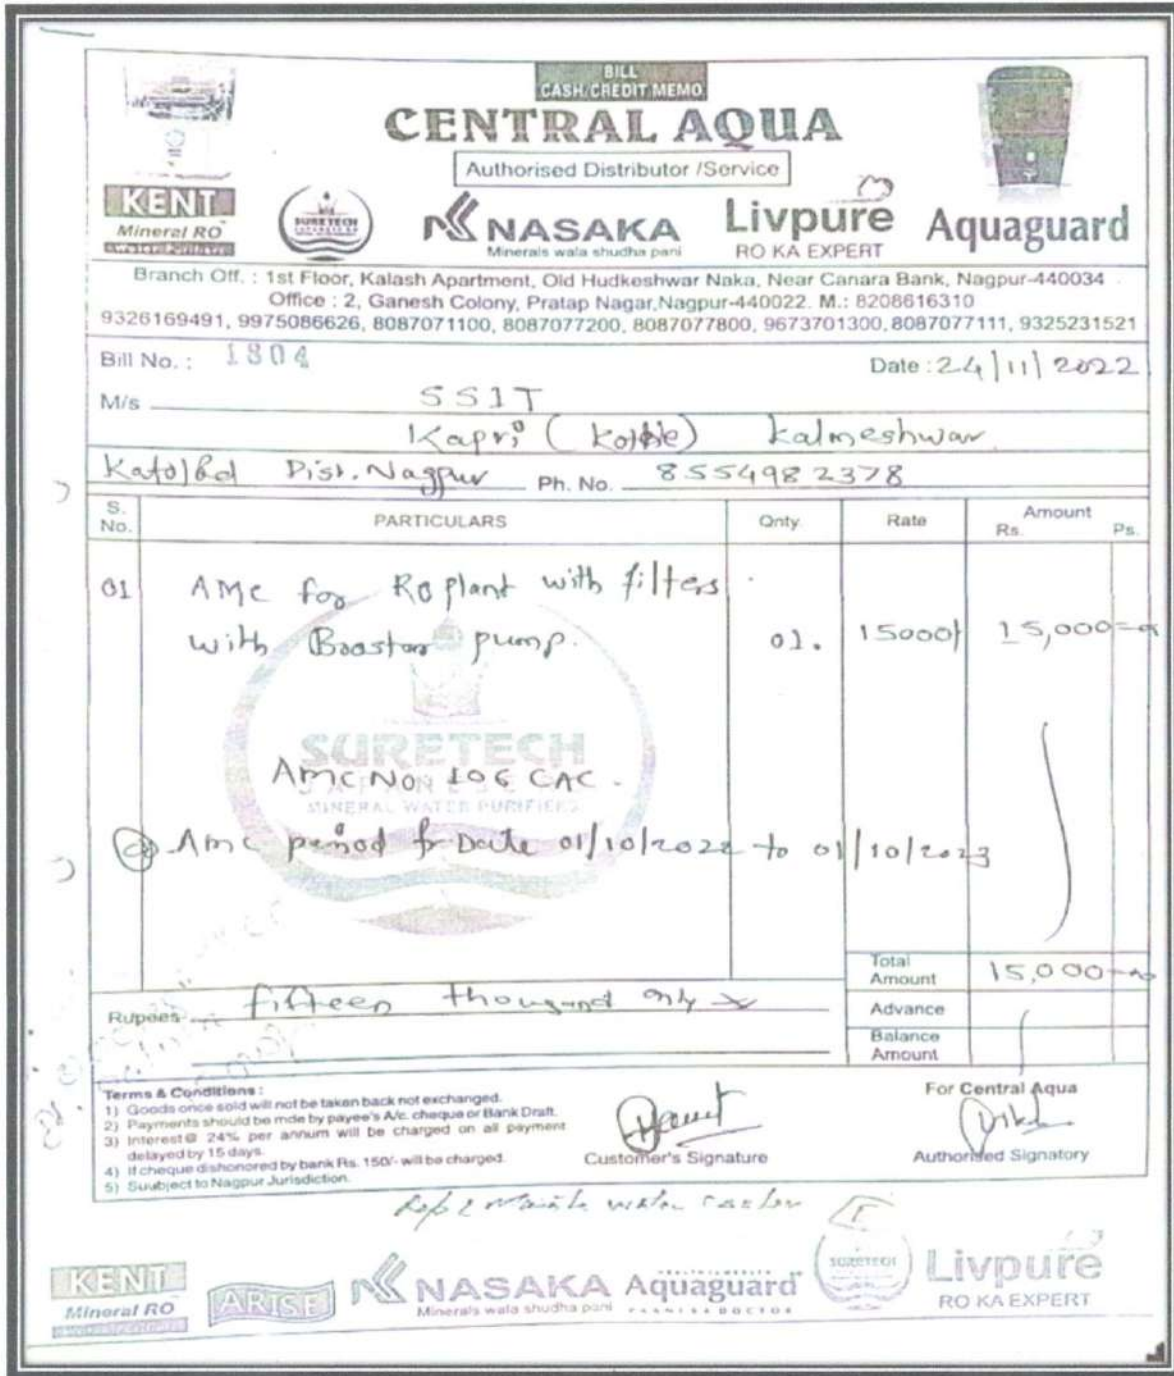 BILL
CASH/CREDIT MEMO
CENTRAL AQUA
Authorised Distributor /Service
KENT
Mineral RO
Water Purifiers
SURETECH
NASAKA
Minerals wala shudha pani
Livpure
RO KA EXPERT
Aquaguard
Branch Off. : 1st Floor, Kalash Apartment, Old Hudkeshwar Naka, Near Canara Bank, Nagpur-440034
Office : 2, Ganesh Colony, Pratap Nagar,Nagpur-440022. M.: 8208616310
9326169491, 9975086626, 8087071100, 8087077200, 8087077800, 9673701300, 8087077111, 9325231521
Bill No. : 1804 Date : 24/11/2022
M/s SSIT
Kapri ( ) Kalmeshwar
Katol Rd Dist. Nagpur Ph. No. 8554982378
S. No. PARTICULARS Qnty. Rate Amount Rs. Ps.
01 AMC for RO plant with filters
with Booster pump. 01. 15000/ 15,000=00
SURETECH
AMC NO 106 CAC.
MINERAL WATER PURIFIERS
AMC period for Date 01/10/2022 to 01/10/2023
Total Amount 15,000=00
Rupees fifteen thousand only
Advance
Balance Amount
Terms & Conditions :
1) Goods once sold will not be taken back not exchanged.
2) Payments should be mde by payee's A/c. cheque or Bank Draft.
3) Interest@ 24% per annum will be charged on all payment
delayed by 15 days.
4) If cheque dishonored by bank Rs. 150/- will be charged.
5) Suubject to Nagpur Jurisdiction.
Customer's Signature
For Central Aqua
Authorised Signatory
water
KENT
Mineral RO
ARISE
NASAKA
Minerals wala shudha pani
Aquaguard
SURETECH
Livpure
RO KA EXPERT